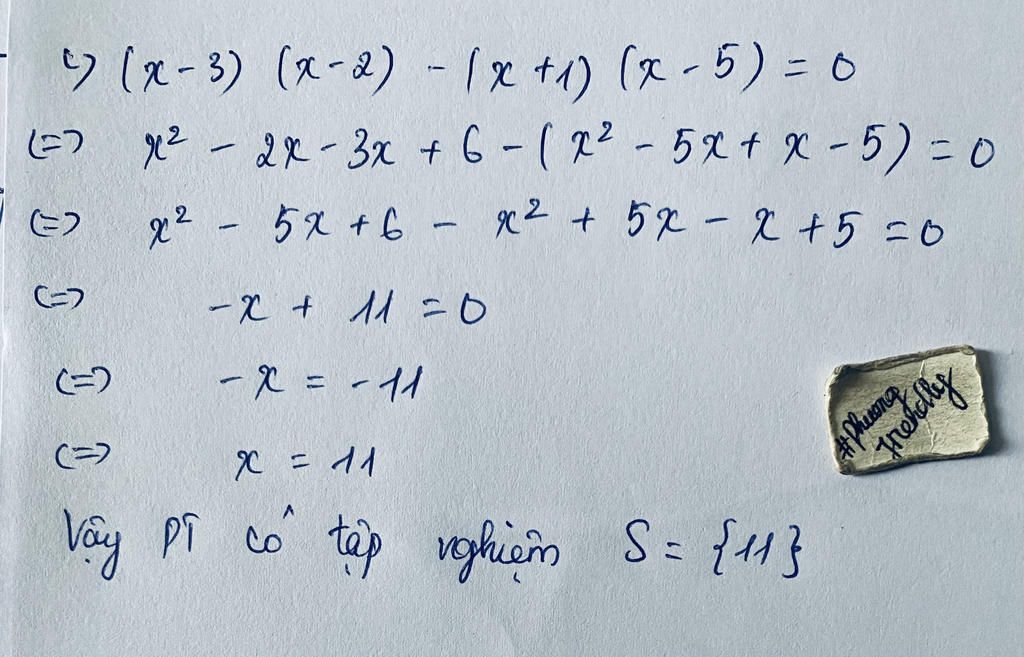 c) (x-3) (x-2) - (x+1) (x-5) = 0
(=) x² - 2x - 3x + 6 - (x² - 5x + x - 5) = 0
(=) x² - 5x + 6 - x² + 5x - x + 5 = 0
(=) -x + 11 = 0
(=) -x = -11
(=) x = 11
Vậy PT có tập nghiệm S = {11}
#Phuong
Friendly